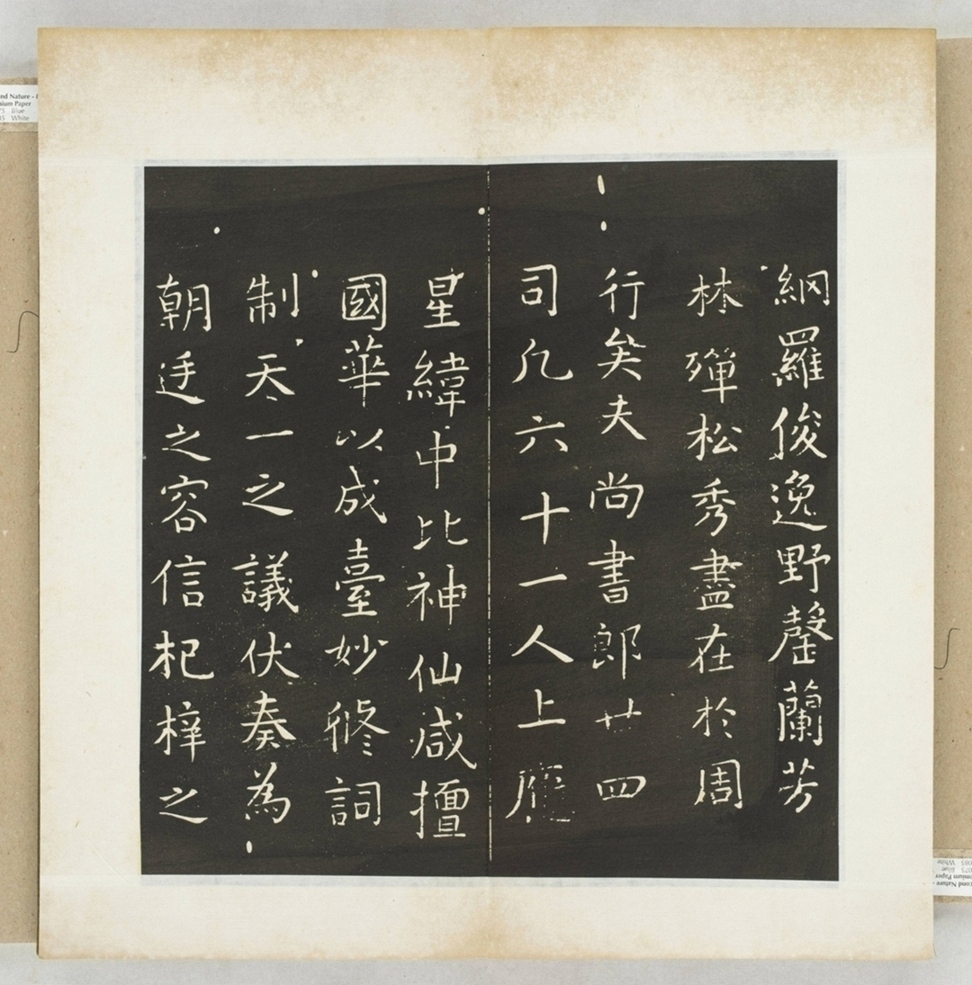 網羅俊逸野罄蘭芳
林殫松秀盡在於周
行矣夫尚書郎廿四
司凡六十一人上應
星緯中比神仙咸擅
國華以成臺妙脩詞
制天一之議伏奏為
朝廷之容信杞梓之